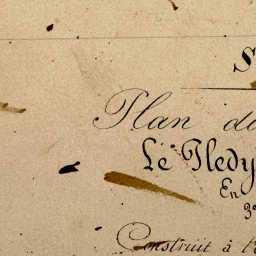 S
Plan du
Le Tledy
En
Construit à l'